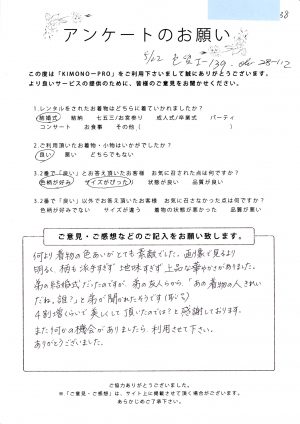 38
アンケートのお願い
5/12 色留I-139.
この度は「KIMONO-PRO」をご利用下さいまして誠にありがとうございます。
より良いサービスの提供のために、皆様のご意見をお聞かせください。
1.レンタルをされたお着物はどちらに着ていかれましたか?
結婚式 結納 七五三/お宮参り 成人式/卒業式 パーティ
コンサート お食事 その他( )
2.ご利用頂いたお着物・小物はいかがでしたか?
良い 悪い どちらでもない
3.2番で「良い」とお答え頂いたお客様 お気に召された点は何ですか?
色柄が好み サイズがぴったり 状態が良い 品質が良い
3.2番で「良い」以外でお答え頂いたお客様 お気に召さなかった点は何ですか?
色柄が好みでない サイズが違う 着物の状態が悪かった 品質が悪い
ご意見・ご感想などのご記入をお願い致します。
何より着物の色あいがとても素敵でした。画像で見るより
明るく 柄も派手すぎず 地味すぎず 上品な華やかさがありました。
弟の結婚式だったのですが、弟の友人らから「あの着物の人、きれい
だね。誰?」と弟が聞かれたそうです
4割増くらいで美しくして頂いたのでは?と感謝しております。
また何かの機会がありましたら、利用させて下さい。
ありがとうございました。
ご協力ありがとうございました。
※「ご意見・ご感想」は、サイト上に掲載させて頂く場合がございます。
あらかじめご了承下さい。